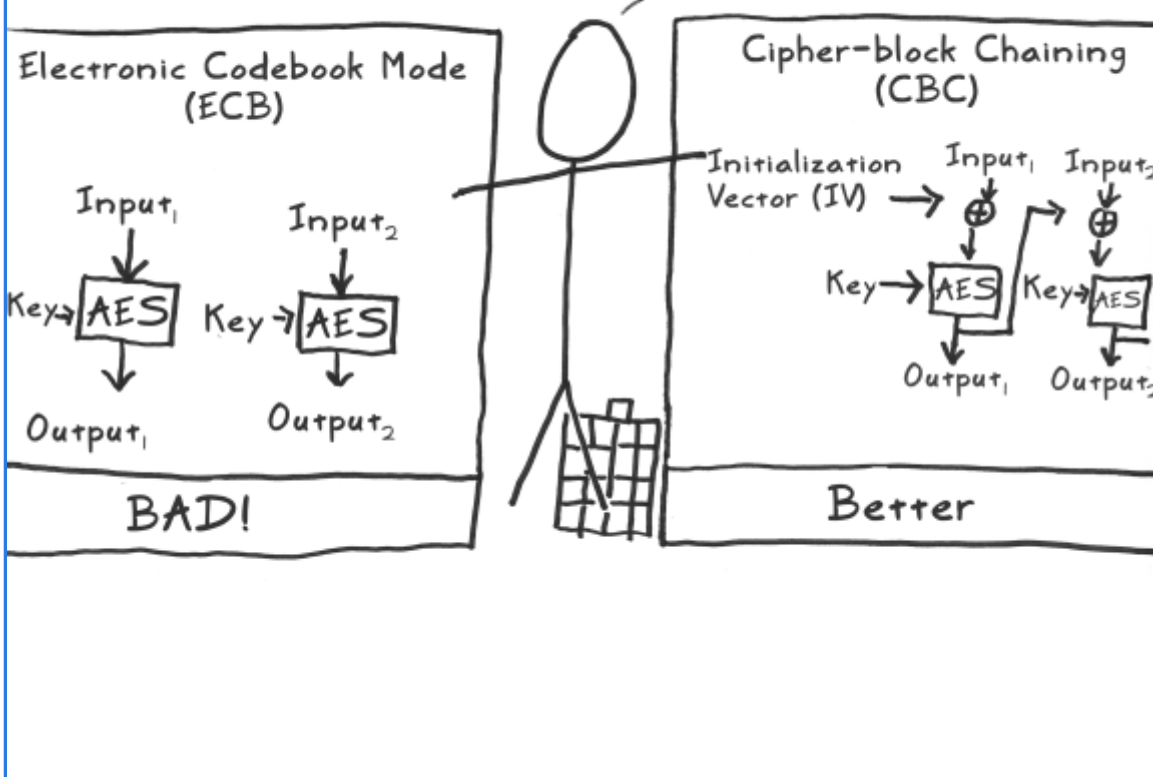 Electronic Codebook Mode
(ECB)
Input₁
Input₂
Key
AES
Key
AES
Output₁
Output₂
BAD!
Cipher-block Chaining
(CBC)
Initialization
Vector (IV)
Input₁
Input₂
Key
AES
Key
AES
Output₁
Output₂
Better